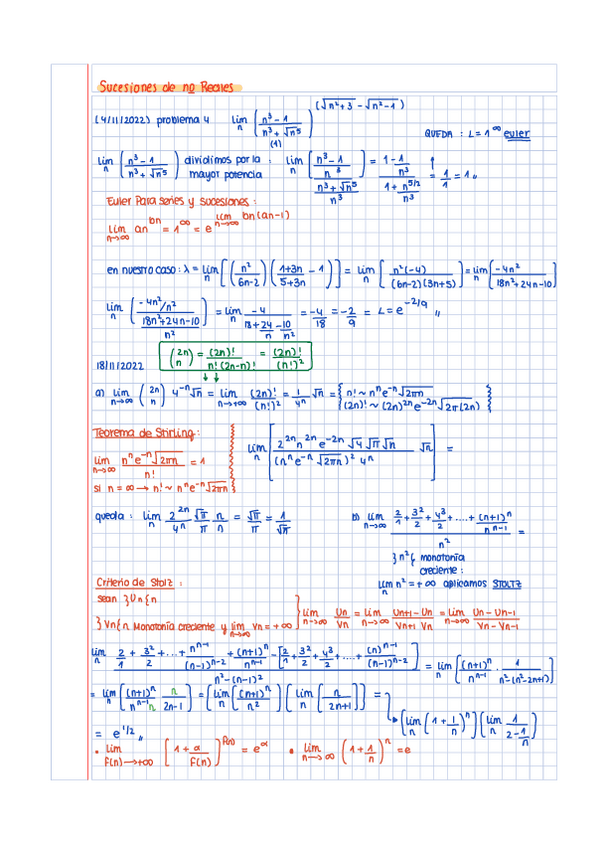 Sucesiones de nº Reales
14/11/2022) problema 4 lim n ( n³-1 / n³+√n⁵ )^(√n²+3 - √n²-1)
(1)
QUEDA : L = 1^∞ euler
lim n ( n³-1 / n³+√n⁵ ) dividimos por la mayor potencia : lim n [ (n³-1 / n³) / (n³+√n⁵ / n³) ] = (1 - 1/n³) / (1 + n^5/2 / n³) = 1/1 = 1 ,,
Euler Para series y sucesiones :
lim n→∞ an^bn = 1^∞ = e^(lim n→∞ bn(an-1))
en nuestro caso : λ = lim n [ (n² / 6n-2) ( 1+3n / 5+3n - 1 ) ] = lim n [ n²(-4) / (6n-2)(3n+5) ] = lim n [ -4n² / 18n²+24n-10 ]
lim n ( (-4n²/n²) / (18n²+24n-10 / n²) ) = lim n -4 / (18 + 24/n - 10/n²) = -4/18 = -2/9 = L = e^-2/9 ,,
(2n n) = (2n)! / n!(2n-n)! = (2n)! / (n!)²
18/11/2022
a) lim n→∞ (2n n) 4^-n √n = lim n→+∞ (2n)! / (n!)² = 1/4ⁿ √n = { n! ~ nⁿ e^-n √2πn
(2n)! ~ (2n)^2n e^-2n √2π(2n) }
Teorema de Stirling :
lim n→∞ nⁿ e^-n √2πn / n! = 1
si n = ∞ → n! ~ nⁿ e^-n √2πn
lim n [ 2^2n n^2n e^-2n √4 √π √n / (nⁿ e^-n √2πn)² 4ⁿ √n ] =
queda : lim n 2^2n / 4ⁿ √π/π n/n = √π/π = 1/√π
b) lim n→∞ ( 2/1 + 3²/2 + 4³/2 + .... + (n+1)ⁿ / n^n-1 ) / n² =
}n²{ monotonía creciente :
lim n n² = +∞ aplicamos STOLTZ
Criterio de Stolz :
sean }Un{n
}Vn{n Monotonía creciente y lim n→∞ Vn = +∞
} lim n→∞ Un/Vn = lim n→∞ Un+1 - Un / Vn+1 Vn = lim n→∞ Un - Un-1 / Vn - Vn-1
lim n ( 2/1 + 3²/2 + ... + n^n-1 / (n-1)^n-2 + (n+1)ⁿ / n^n-1 - [ 2/1 + 3²/2 + 4³/2 + .... + (n)^n-1 / (n-1)^n-2 ] ) / n²-(n-1)² = lim n [ (n+1)ⁿ / n^n-1 · 1 / n²-(n²-2n+1) ]
= lim n [ (n+1)ⁿ / n^n-1 n · n / 2n-1 ] = [ lim n (n+1)ⁿ / n² ] [ lim n [ n / 2n+1 ] ] =
→ [ lim n (1 + 1/n)ⁿ ] [ lim n 1 / 2 - 1/n ]
= e^1/2 ,,
• lim f(n)→+∞ [ 1 + α / f(n) ]^f(n) = e^α • lim n→∞ ( 1 + 1/n )ⁿ = e